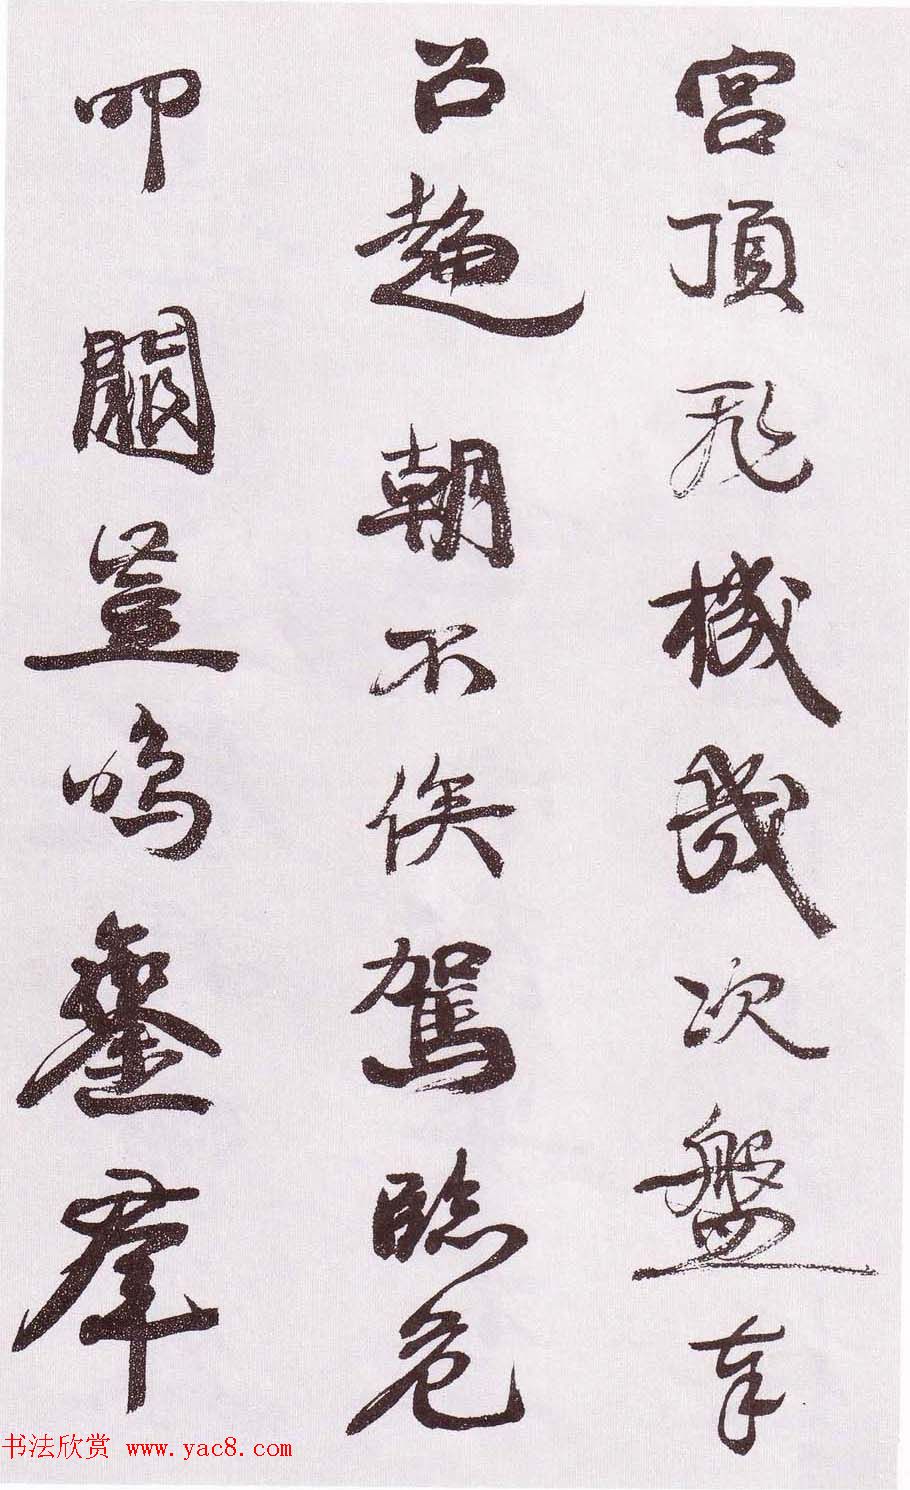 宮頂飛機幾次盤奉
召趨朝不俟駕臨危
叩闕豈鳴鑾羣
书法欣赏 www.yac8.com